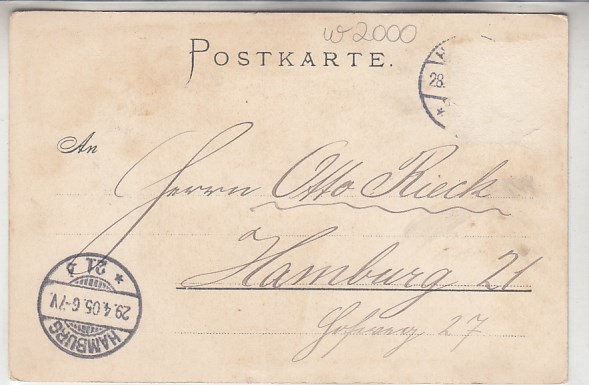 w 2000
POSTKARTE.
28.
An
Herrn Otto Rieck
Hamburg 21
Hofweg 27
HAMBURG
29.4.05.6-7V.
* 21 *